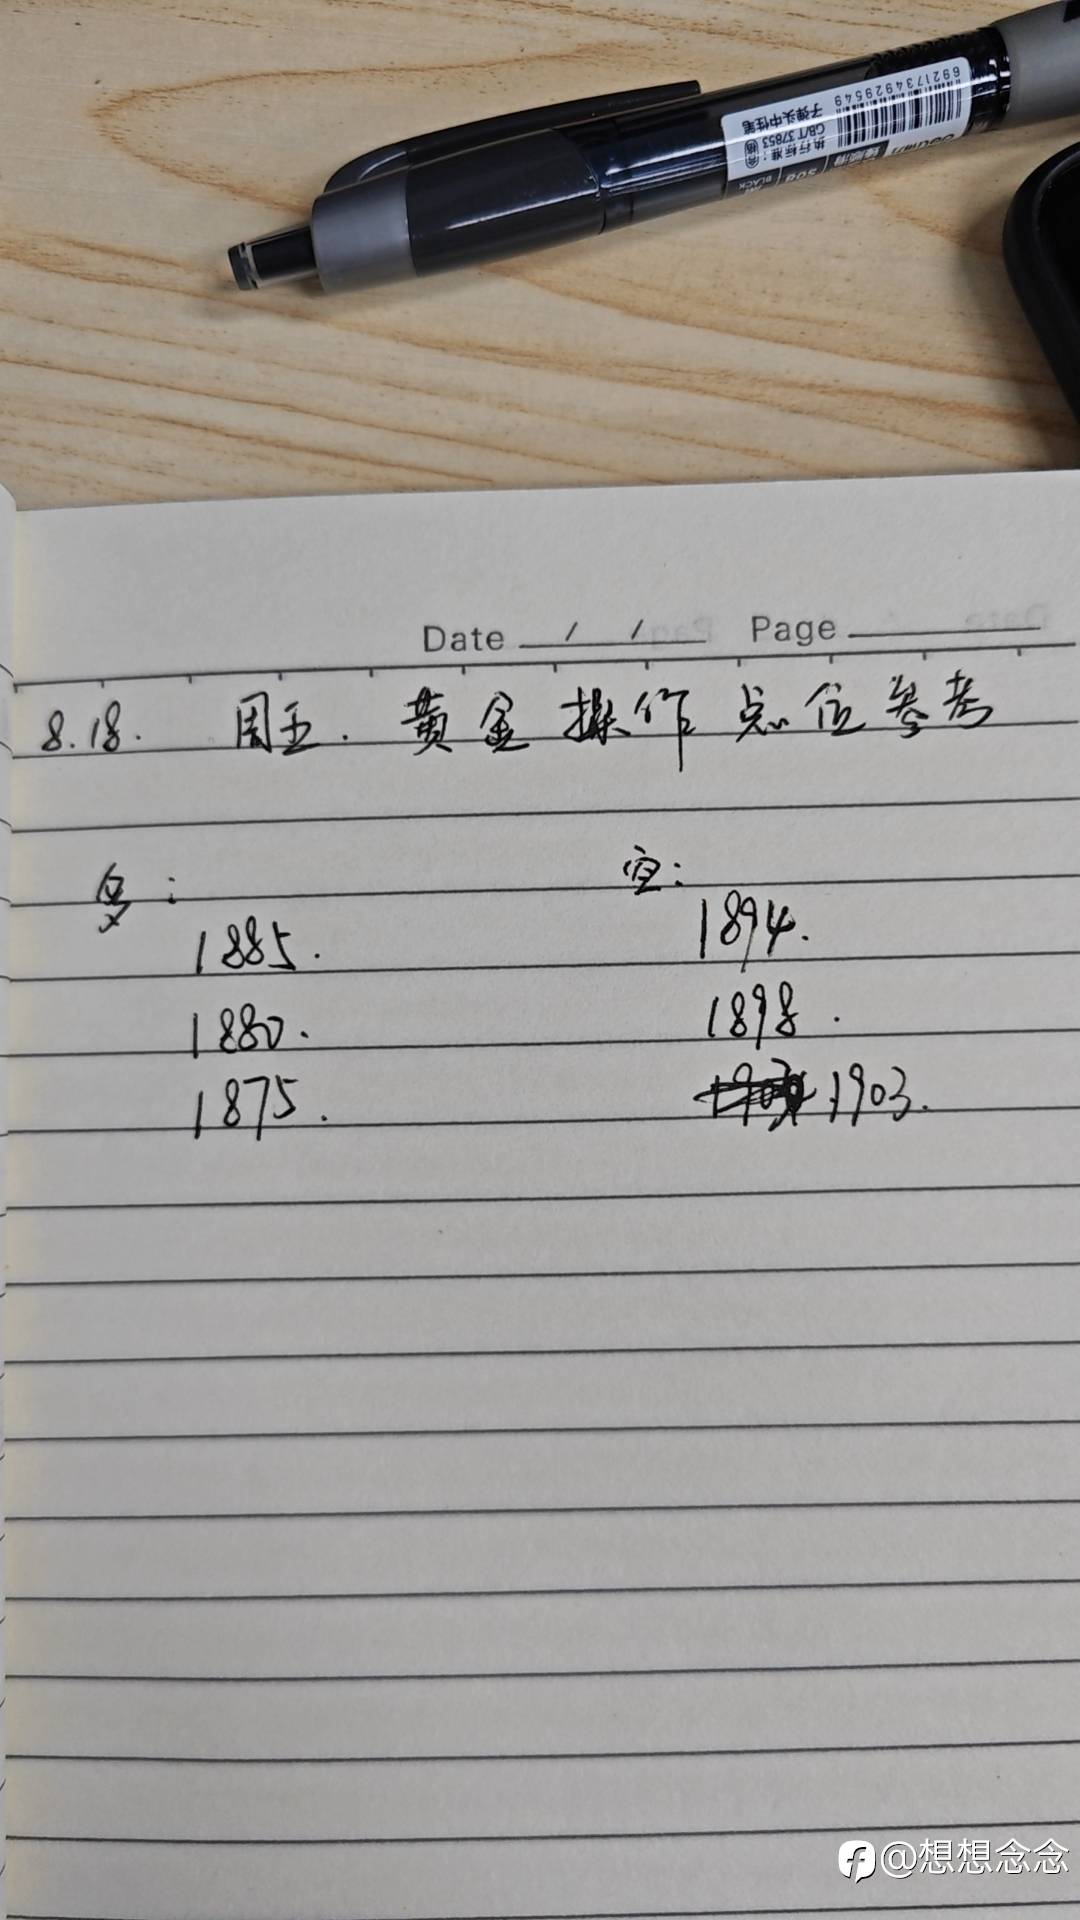 6921734929549
子弹头中性笔
执行标准:
GB/T 37853
BLACK
Date / / Page
8.18. 周五. 黄金操作点位参考
多: 空:
1885. 1894.
1880. 1898.
1875. 1903.
@想想念念